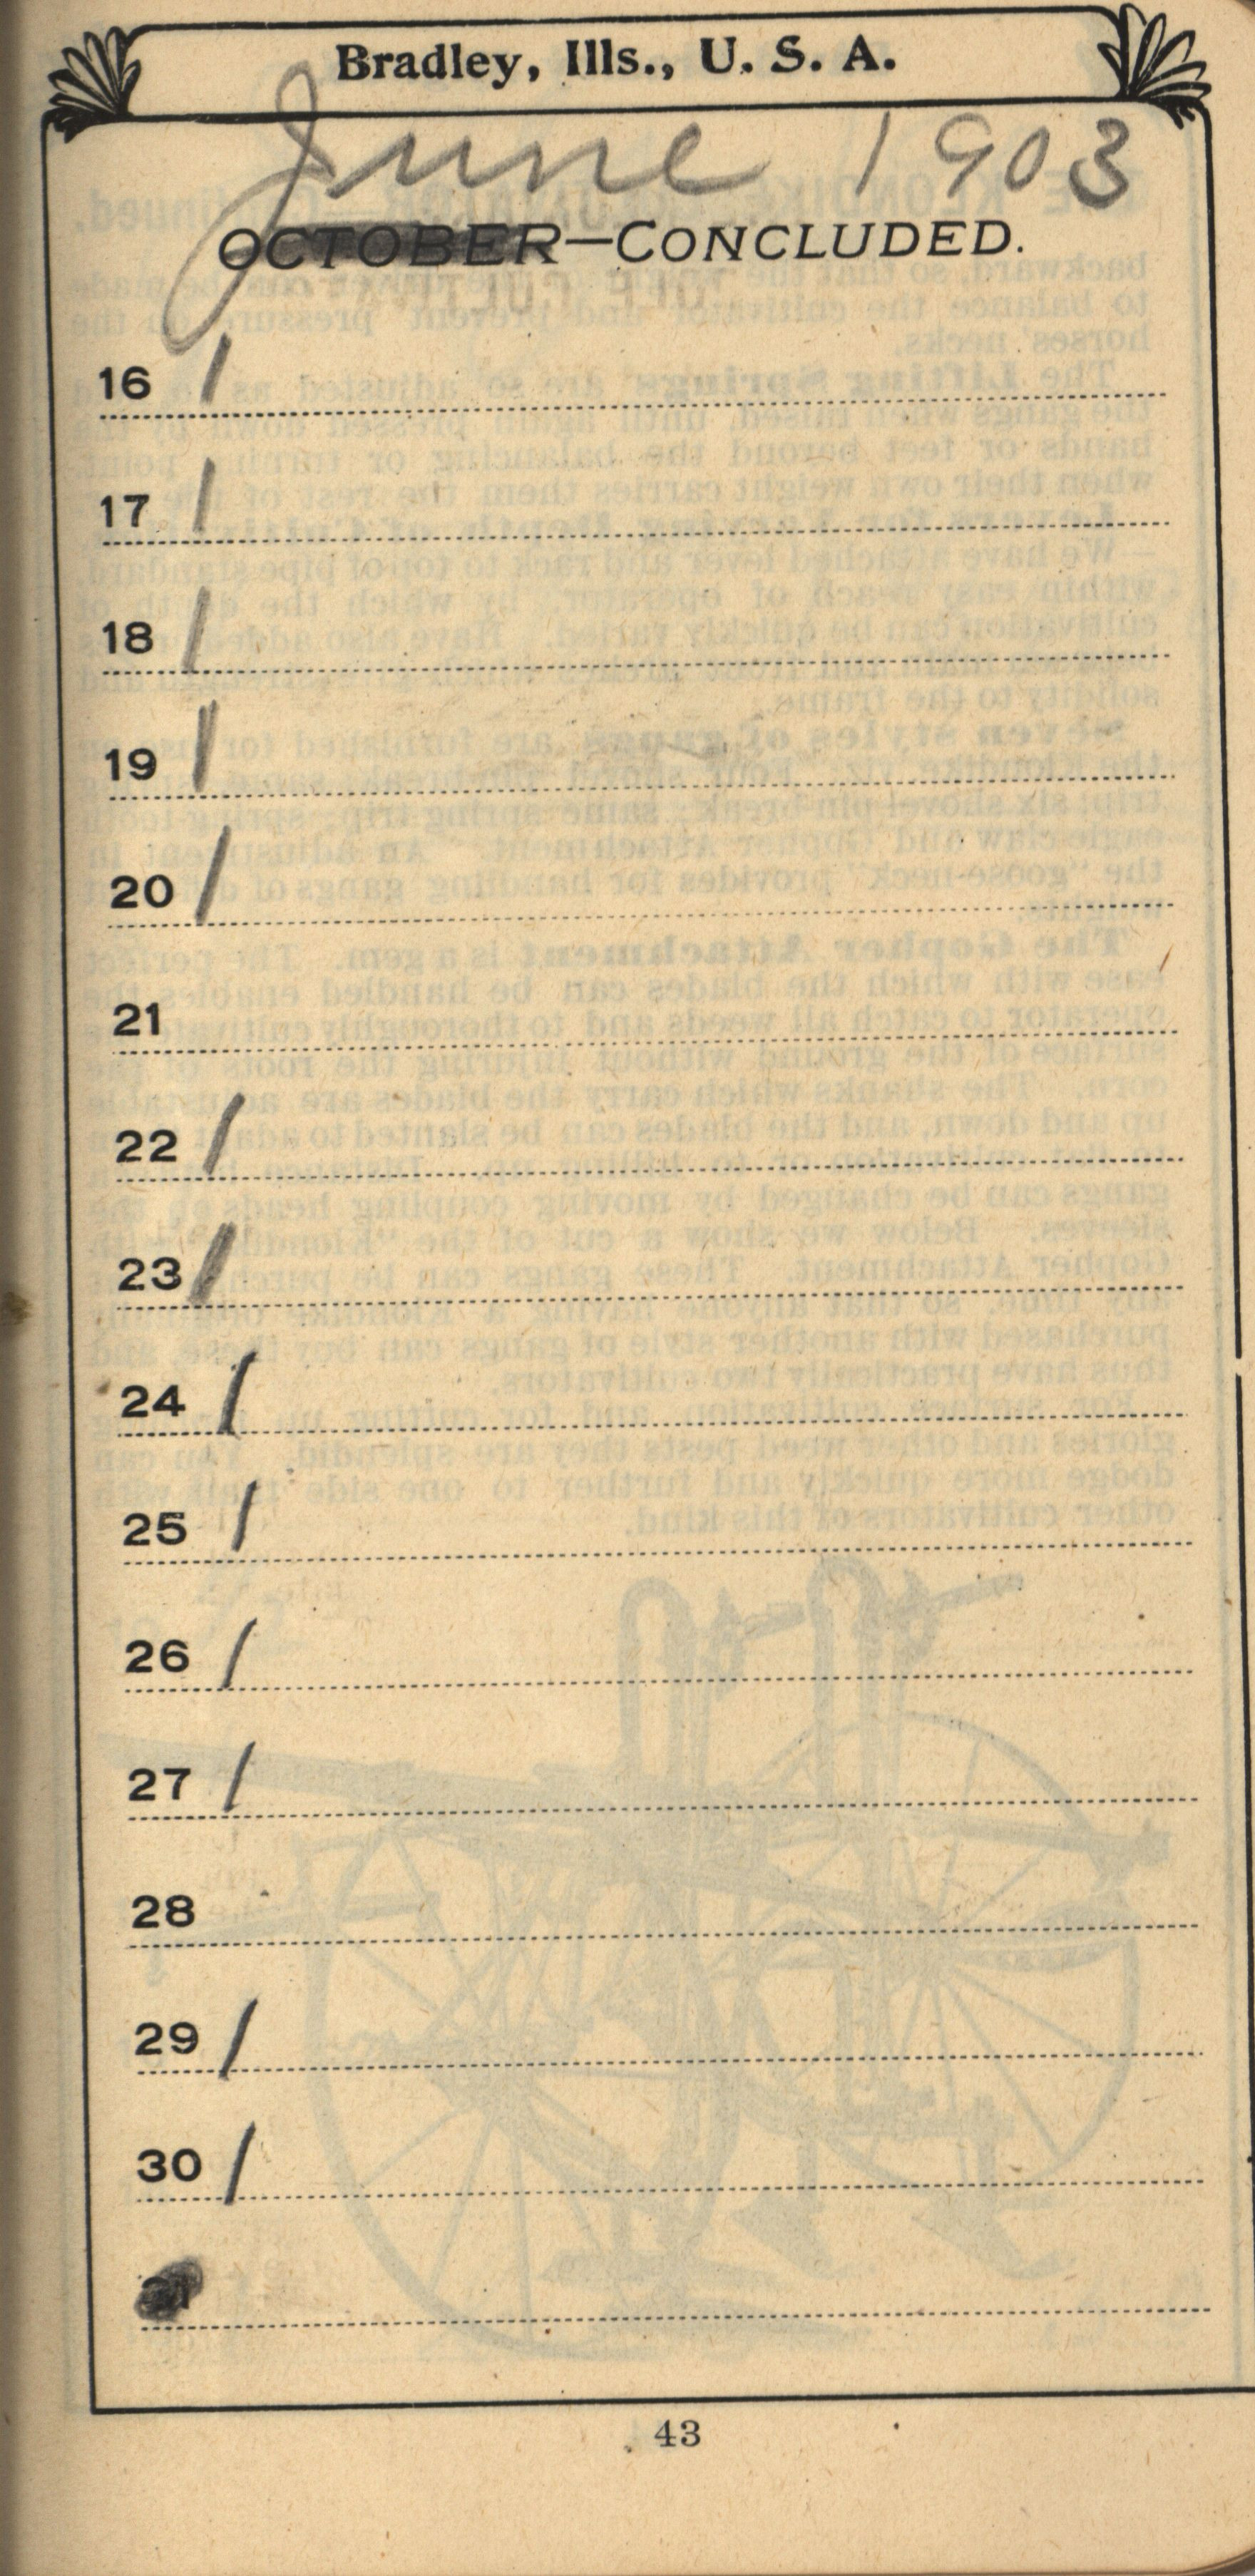 Bradley, Ills., U. S. A.
June 1903
OCTOBER—CONCLUDED.
16 /
17 /
18 /
19 /
20 /
21
22 /
23 /
24 /
25 /
26 /
27 /
28
29 /
30 /
31
43